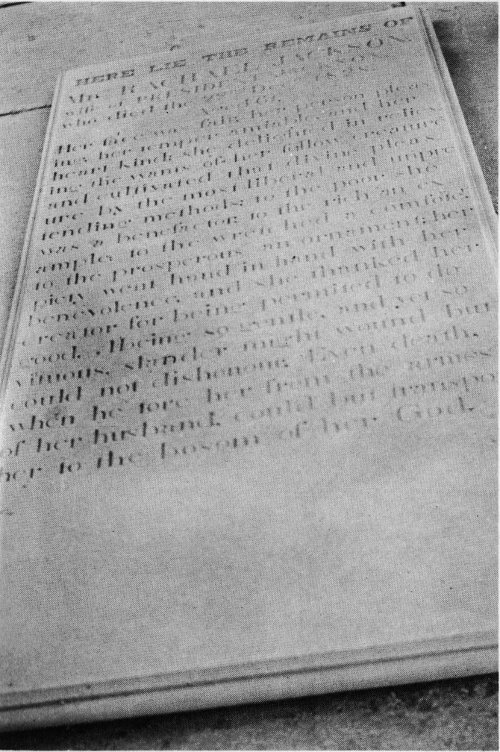 HERE LIE THE REMAINS OF
Mrs RACHAEL JACKSON
wife of PRESIDENT JACKSON
who died the 22nd Decr 1828
Aged 61.
Her face was fair, her person plea
ing, her temper amiable and her
heart kind; she delighted in reliev
ing the wants of her fellow creature
and cultivated that divine pleas
ure by the most liberal and unpre
tending methods; to the poor she
was a benefactor; to the rich an ex
ample; to the wretched a comforter
to the prosperous an ornament; her
piety went hand in hand with her
benevolence, and she thanked her
creator for being permitted to do
good. A being so gentle, and yet so
virtuous, slander might wound but
could not dishonour. Even death,
when he tore her from the armes
of her husband, could but transpo
her to the bosom of her God.